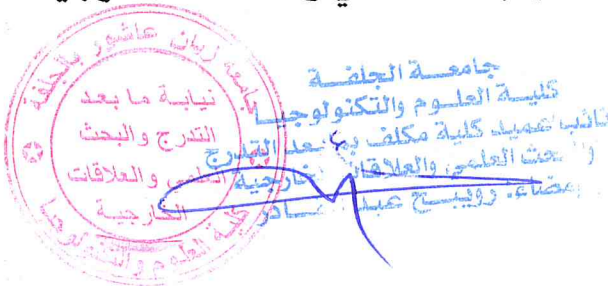 جامعة زيان عاشور بالجلفة
نيابة ما بعد
التدرج والبحث
العلمي والعلاقات
الخارجية
كلية العلوم والتكنولوجيا
جامعـــة الجلفـــة
كليـة العلـــوم والتكنولوجيـــا
نائب عميد كلية مكلف بما بعد التدرج
والبحث العلمي والعلاقات الخارجية
إمضاء. رويبـــح عبد